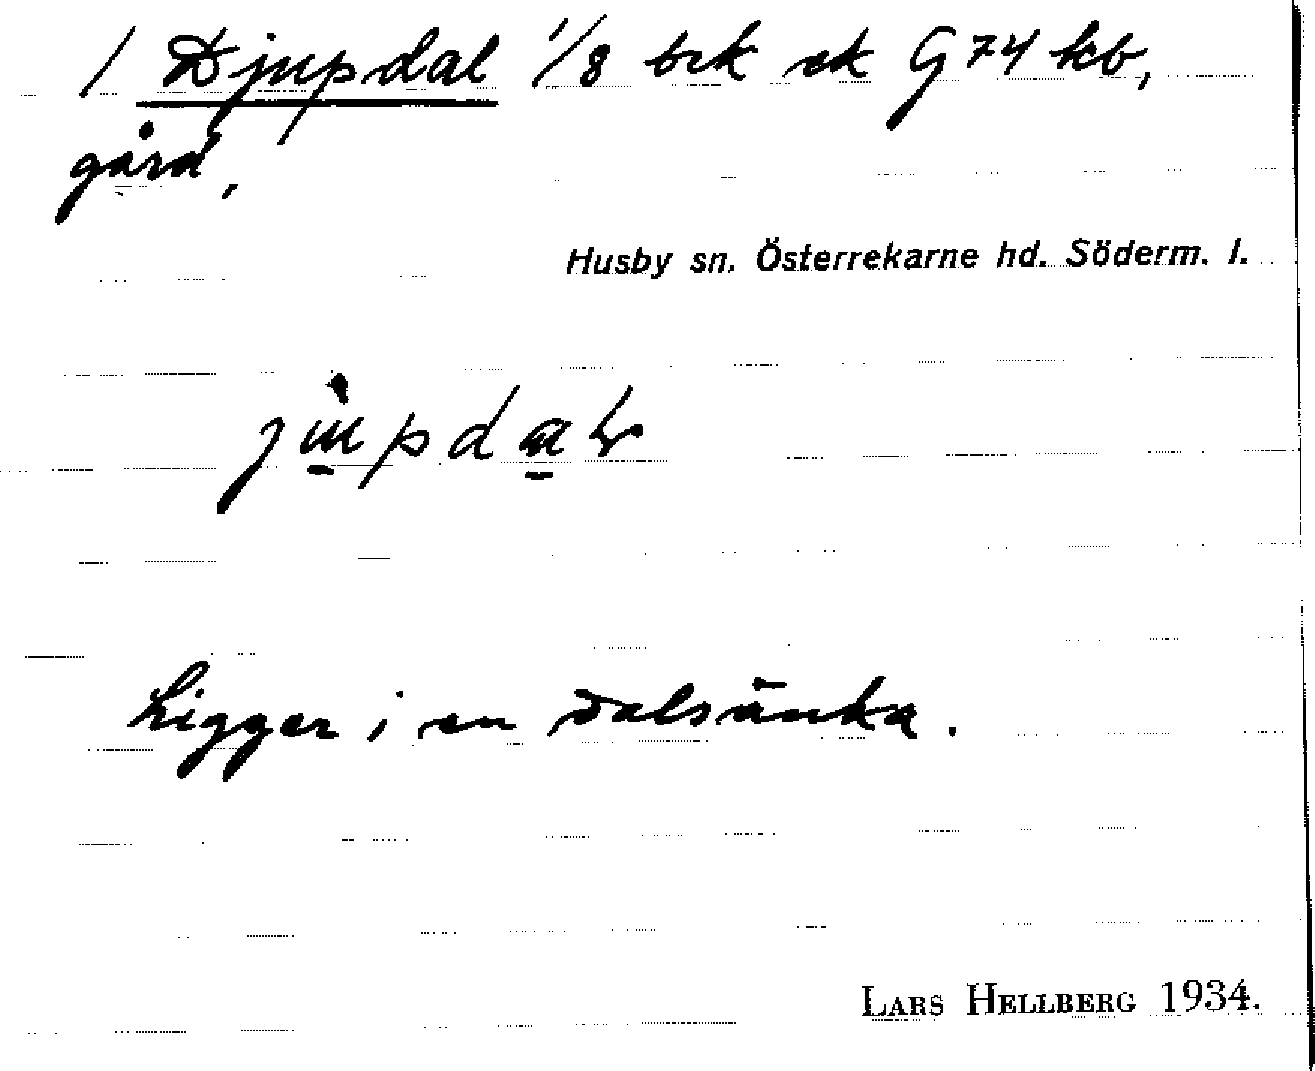 / Djupdal 1/8 brk ek G74 kb,
gård,
Husby sn. Österrekarne hd. Söderm. l.
Ligger i en dalsänka.
LARS HELLBERG 1934.